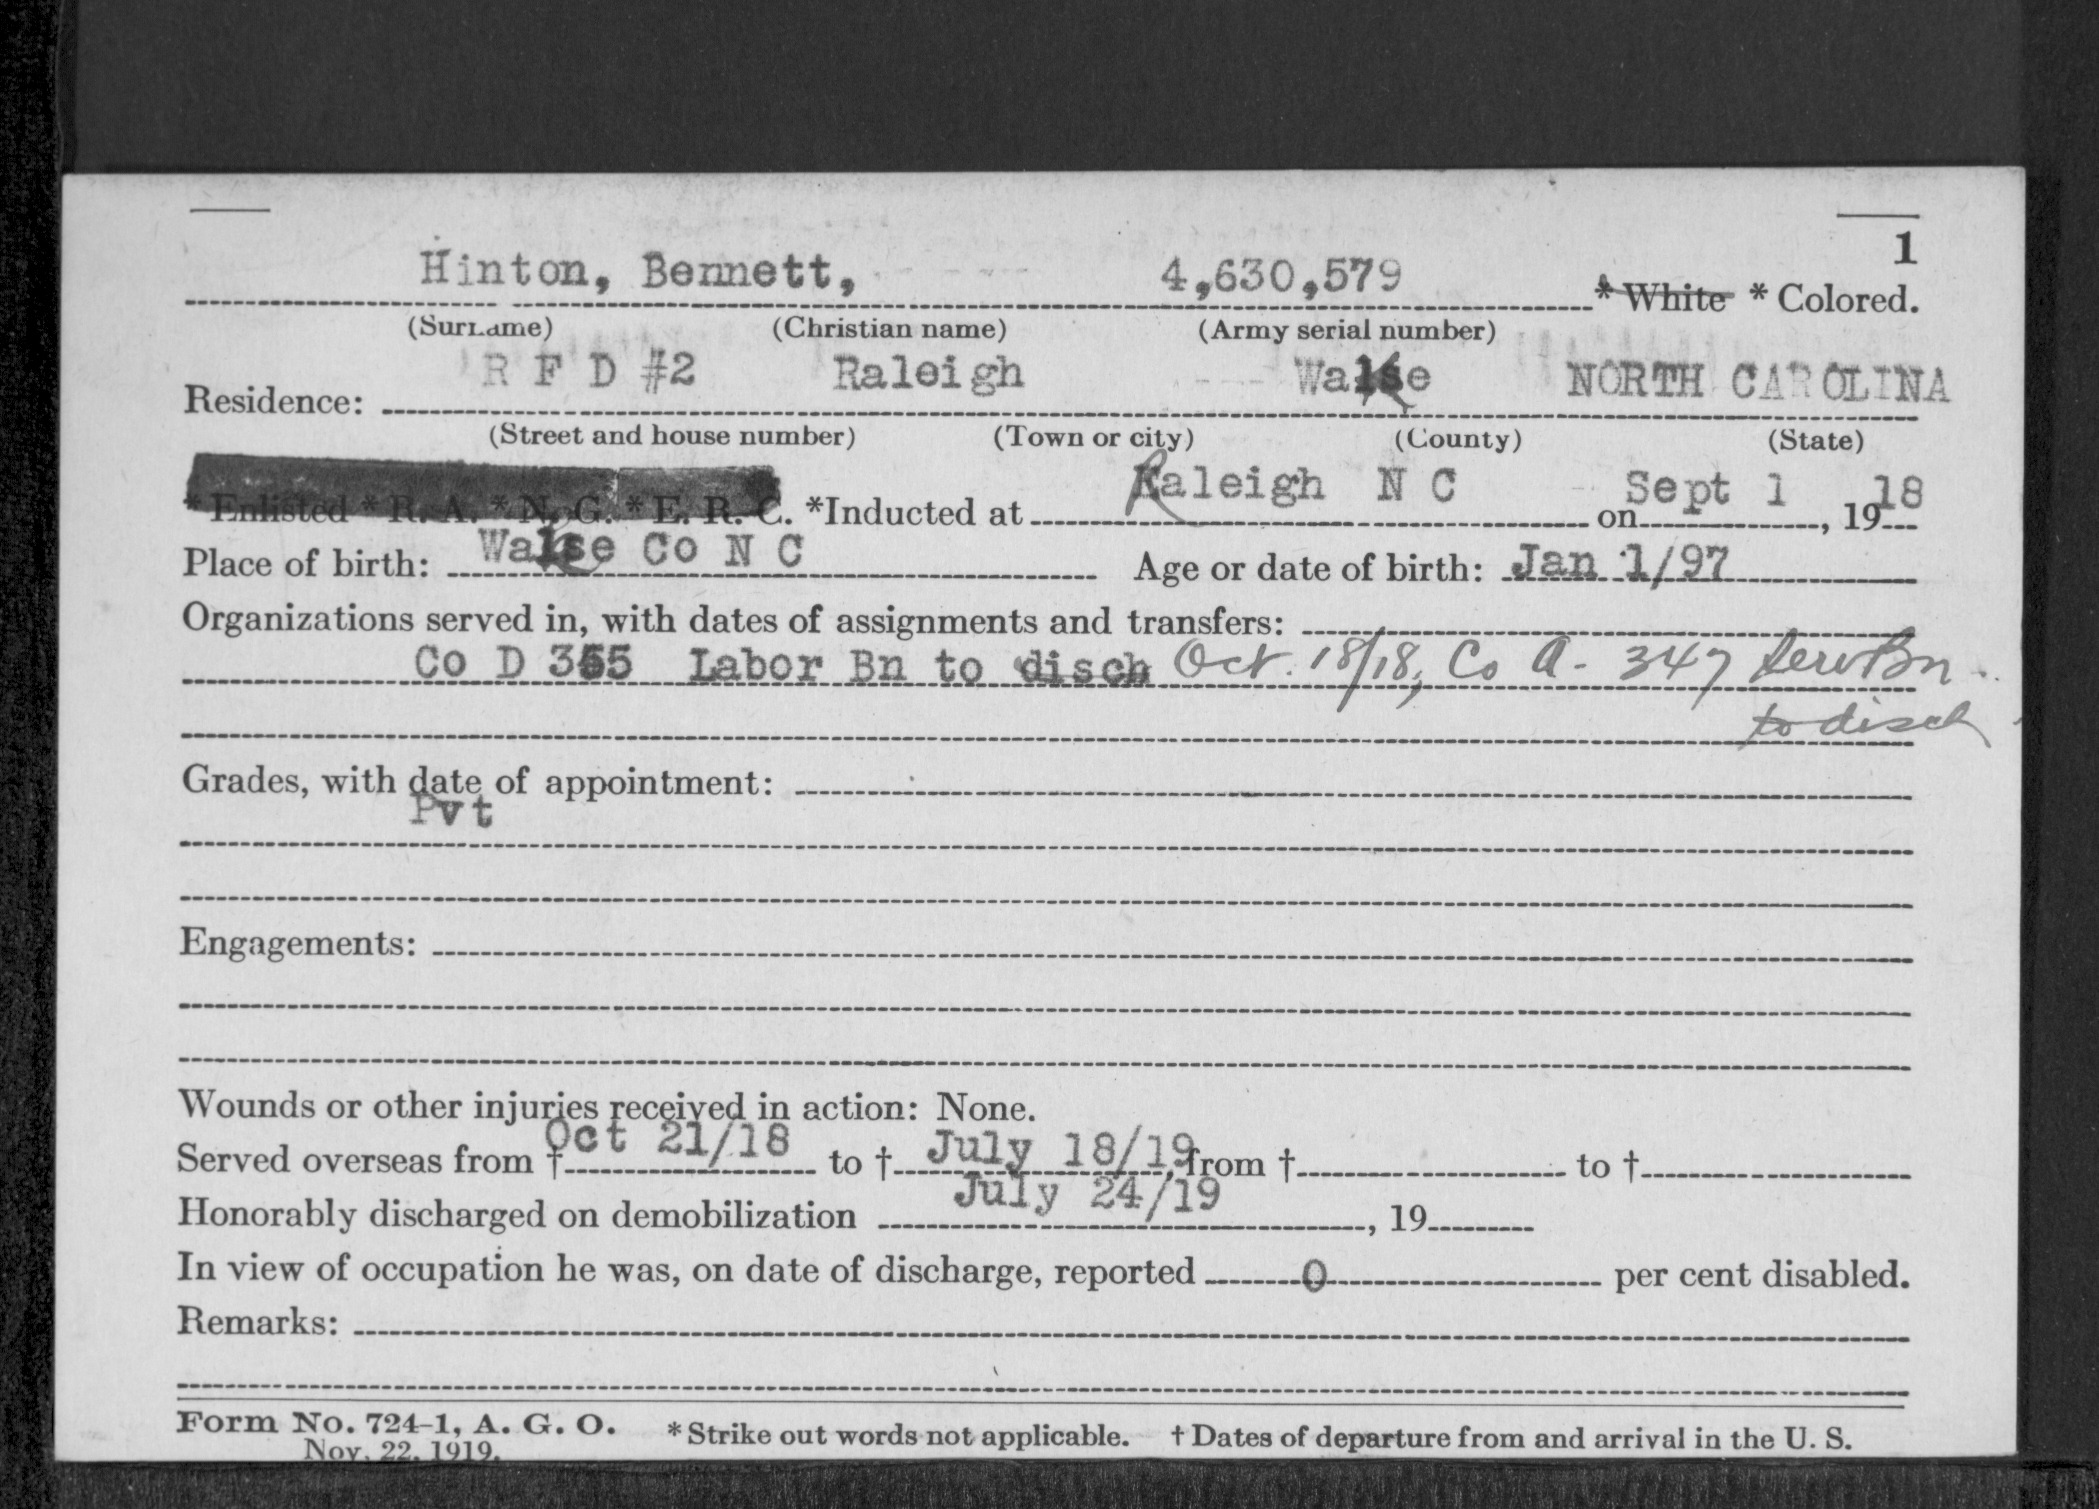 1
Hinton, Bennett, 4,630,579 * White * Colored.
(Surname) (Christian name) (Army serial number)
R F D #2 Raleigh Wake NORTH CAROLINA
Residence:
(Street and house number) (Town or city) (County) (State)
* Enlisted * R. A. * N. G. * E. R. C. *Inducted at Raleigh N C on Sept 1, 1918
Place of birth: Wake Co N C Age or date of birth: Jan 1/97
Organizations served in, with dates of assignments and transfers:
Co D 355 Labor Bn to disch Oct. 18/18, Co A. 347 Serv Bn
to disch
Grades, with date of appointment:
Pvt
Engagements:
Wounds or other injuries received in action: None.
Served overseas from † Oct 21/18 to † July 18/19, from † to †
Honorably discharged on demobilization July 24/19, 19
In view of occupation he was, on date of discharge, reported 0 per cent disabled.
Remarks:
Form No. 724-1, A. G. O. * Strike out words not applicable. † Dates of departure from and arrival in the U. S.
Nov. 22, 1919.